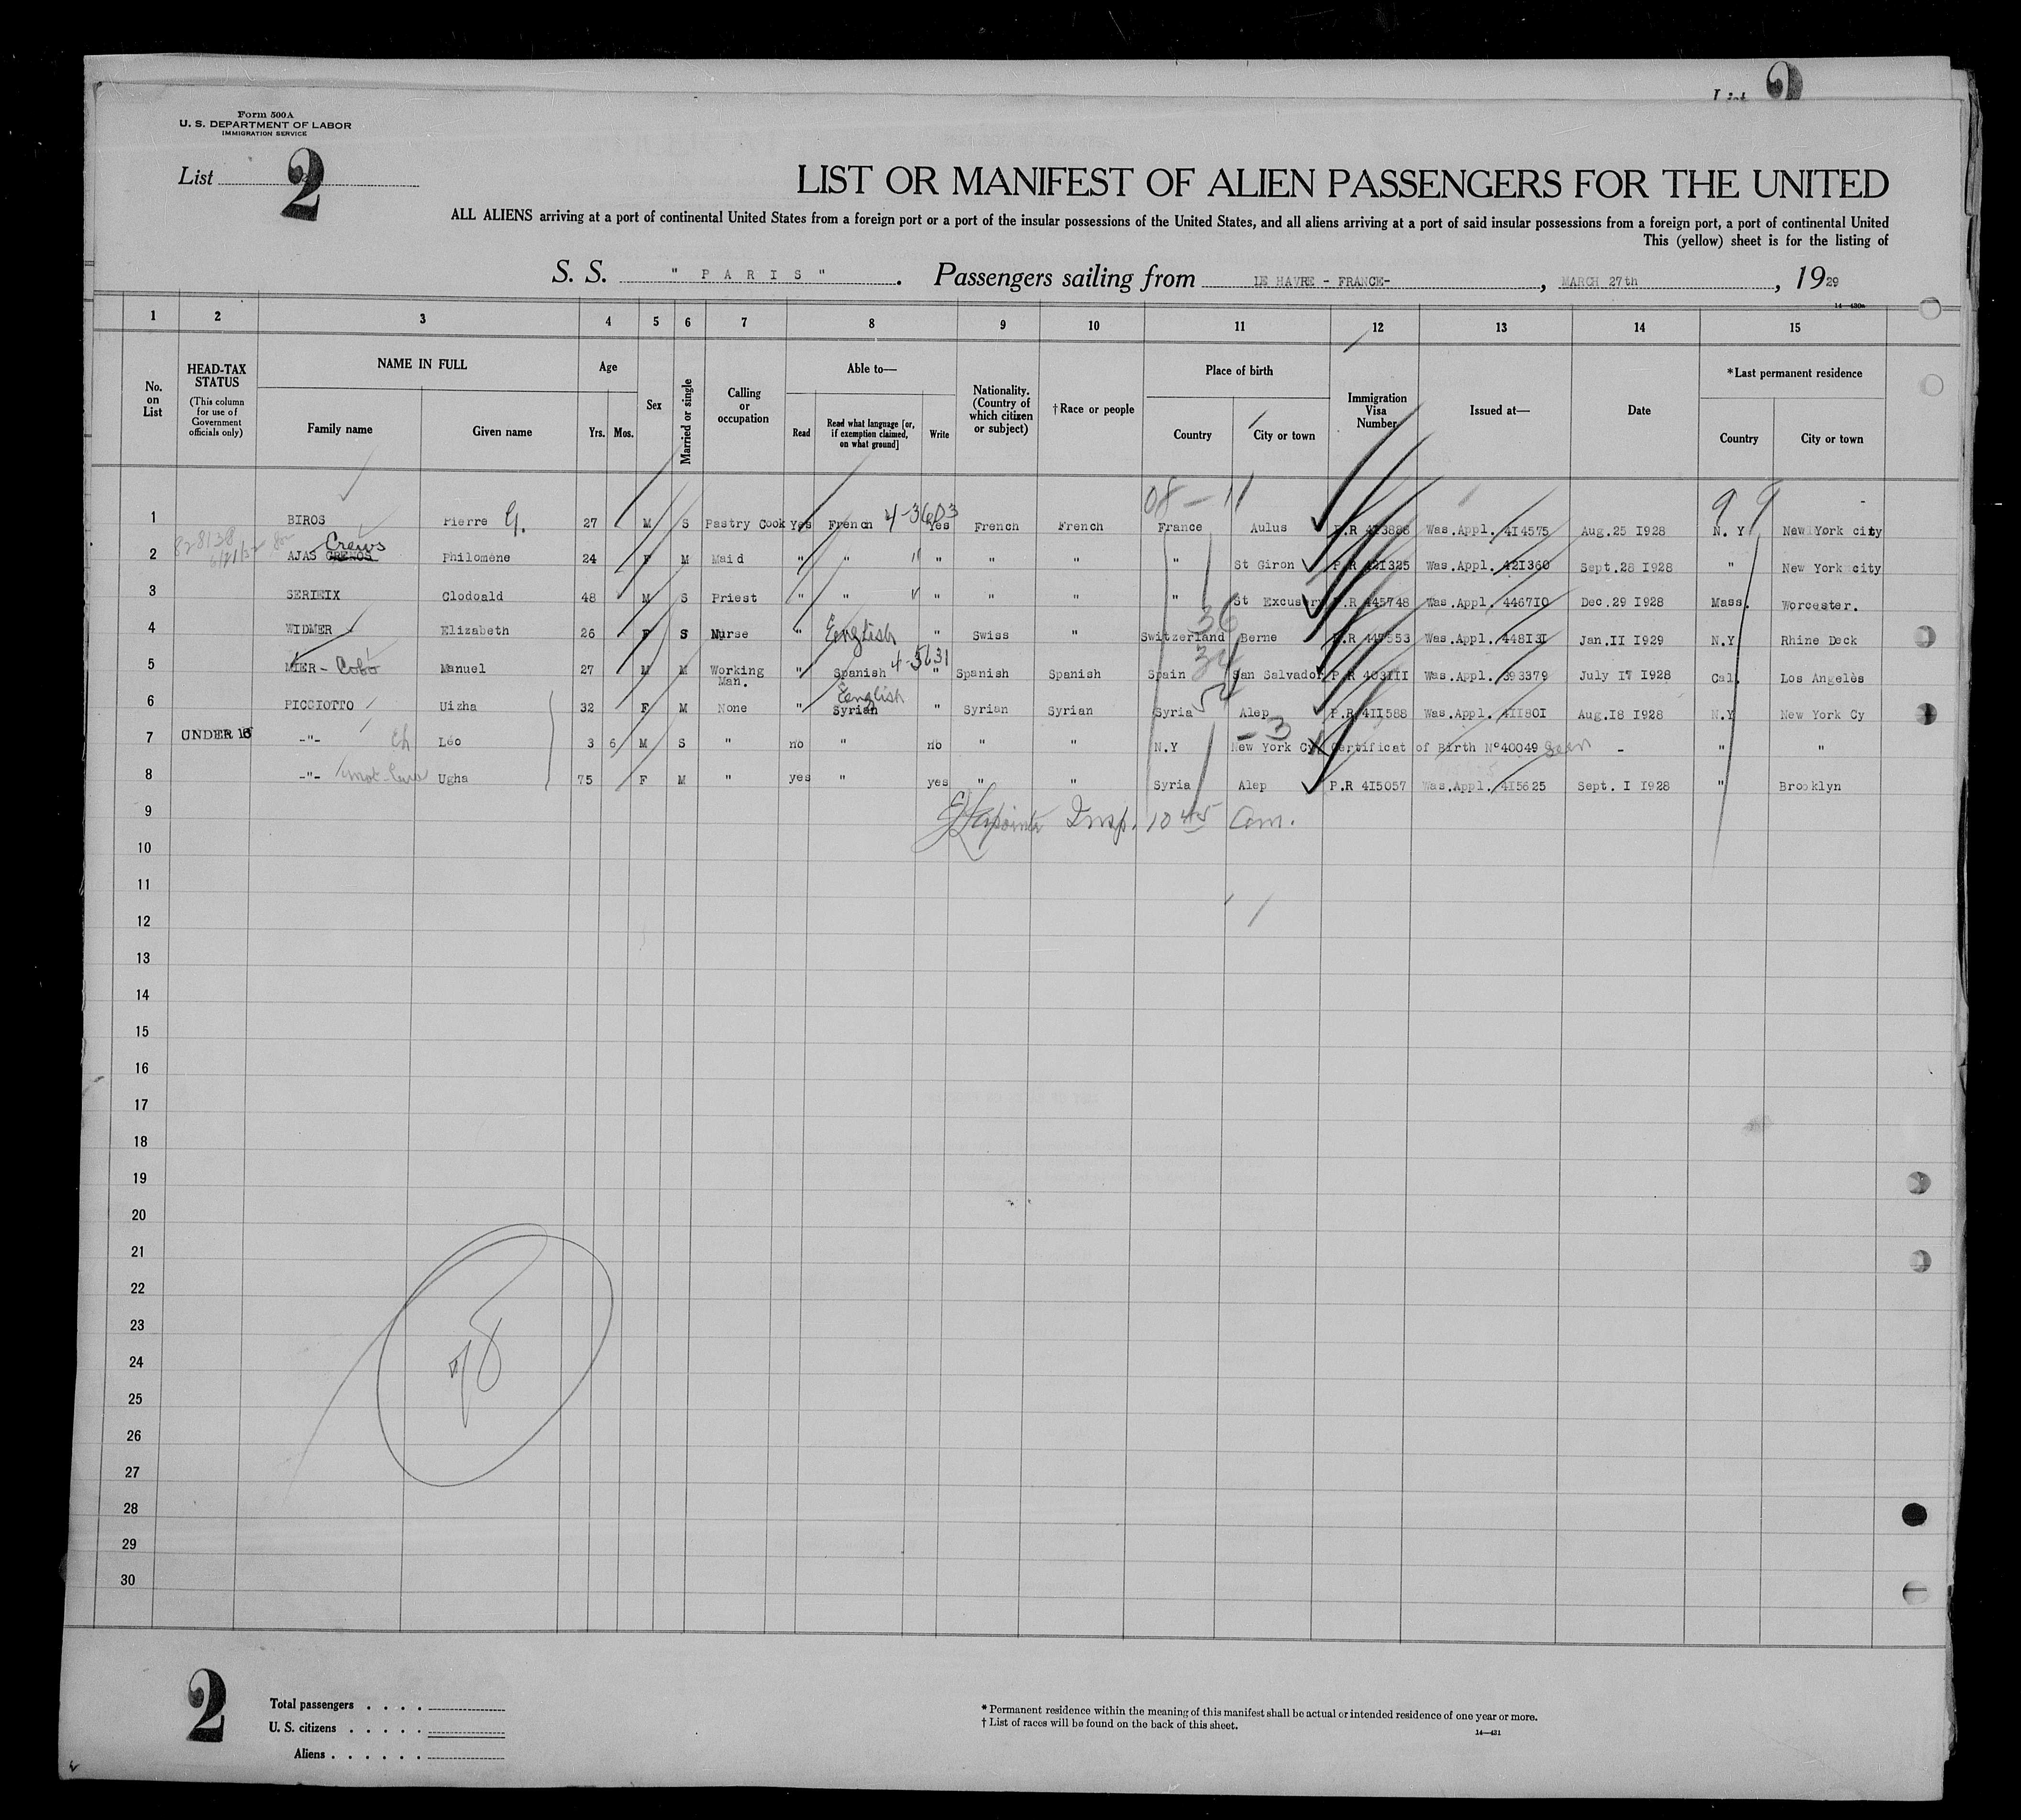 List 2
Form 500A
U. S. DEPARTMENT OF LABOR
IMMIGRATION SERVICE
List 2
LIST OR MANIFEST OF ALIEN PASSENGERS FOR THE UNITED
ALL ALIENS arriving at a port of continental United States from a foreign port or a port of the insular possessions of the United States, and all aliens arriving at a port of said insular possessions from a foreign port, a port of continental United
This (yellow) sheet is for the listing of
S. S. " P A R I S " . Passengers sailing from LE HAVRE - FRANCE- , MARCH 27th , 1929
14—430a
1 2 3 4 5 6 7 8 9 10 11 12 13 14 15
No. on List
HEAD-TAX STATUS
(This column for use of Government officials only)
NAME IN FULL
Family name Given name
Age
Yrs. Mos.
Sex
Married or single
Calling or occupation
Able to—
Read
Read what language [or, if exemption claimed, on what ground]
Write
Nationality. (Country of which citizen or subject)
†Race or people
Place of birth
Country City or town
Immigration Visa Number
Issued at—
Date
*Last permanent residence
Country City or town
08 - 11 9 9
1 BIROS Pierre G. 27 M S Pastry Cook Yes French 4-3603 Yes French French France Aulus P.R 413888 Was.Appl. 414575 Aug.25 1928 N. Y New York city
828138 Crews
2 AJAS GRENOS Philomène 24 F M Maid " " " " " " St Giron P.R 421325 Was.Appl. 421360 Sept.28 1928 " New York city
3 SERIEIX Clodoald 48 M S Priest " " " " " " St Excusery P.R 445748 Was.Appl. 446710 Dec.29 1928 Mass. Worcester.
36
4 WIDMER Elizabeth 26 F S Nurse " English " Swiss " Switzerland Berne P.R 447553 Was.Appl. 448131 Jan.11 1929 N.Y Rhine Deck
4-5631
5 MIER - Cobo Manuel 27 M M Working Man. " Spanish " Spanish Spanish Spain San Salvador P.R 403111 Was.Appl. 393379 July 17 1928 Cal. Los Angelès
English
6 PICCIOTTO Uizha 32 F M None " Syrian " Syrian Syrian Syria Alep P.R 411588 Was.Appl. 411801 Aug.18 1928 N.Y New York Cy
7 UNDER 16 -"- Ch Léo 3 6 M S " no " no " " N.Y New York Cy - 3 Certificat of Birth N°40049 Seen - " "
8 -"- Ugha 75 F M " yes " yes " " Syria Alep P.R 415057 Was.Appl. 415625 Sept. 1 1928 " Brooklyn
9 Lapointe Insp. 10 45 am.
10
11
12
13
14
15
16
17
18
19
20
21
22
23
24
25
26
27
28
29
30
98
2
Total passengers . . . .
U. S. citizens . . . . .
Aliens . . . . . .
* Permanent residence within the meaning of this manifest shall be actual or intended residence of one year or more.
† List of races will be found on the back of this sheet.
14—431